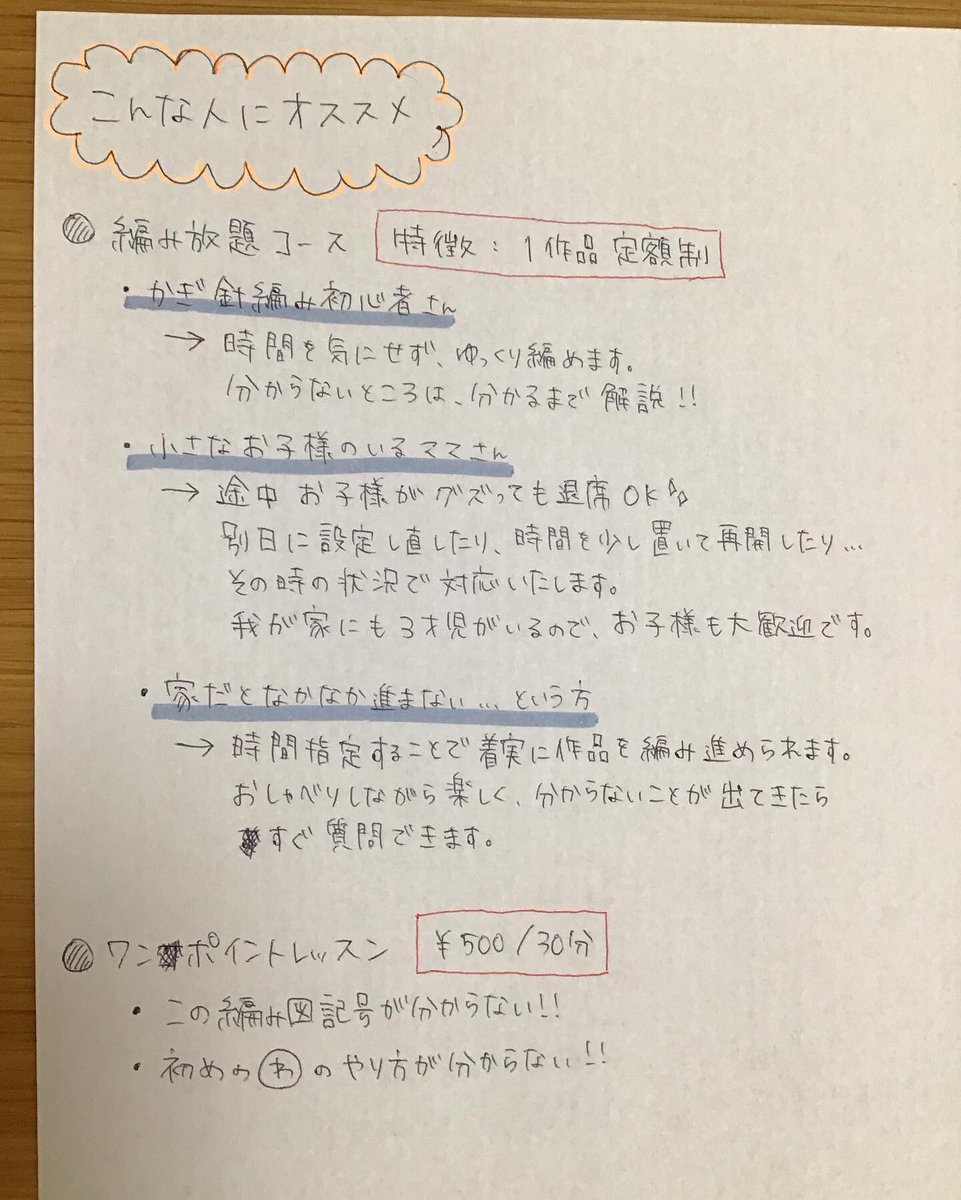 こんな人にオススメ
編み放題コース 特徴：1作品定額制
・かぎ針編み初心者さん
→ 時間を気にせず、ゆっくり編めます。
分からないところは、分かるまで解説!!
・小さなお子様のいるママさん
→ 途中お子様がグズっても退席OK
別日に設定し直したり、時間を少し置いて再開したり...
その時の状況で対応いたします。
我が家にも3才児がいるので、お子様も大歓迎です。
・家だとなかなか進まない...という方
→ 時間指定することで着実に作品を編み進められます。
おしゃべりしながら楽しく、分からないことが出てきたら
すぐ質問できます。
ワンポイントレッスン ¥500/30分
・この編み図記号が分からない!!
・初めのわのやり方が分からない!!